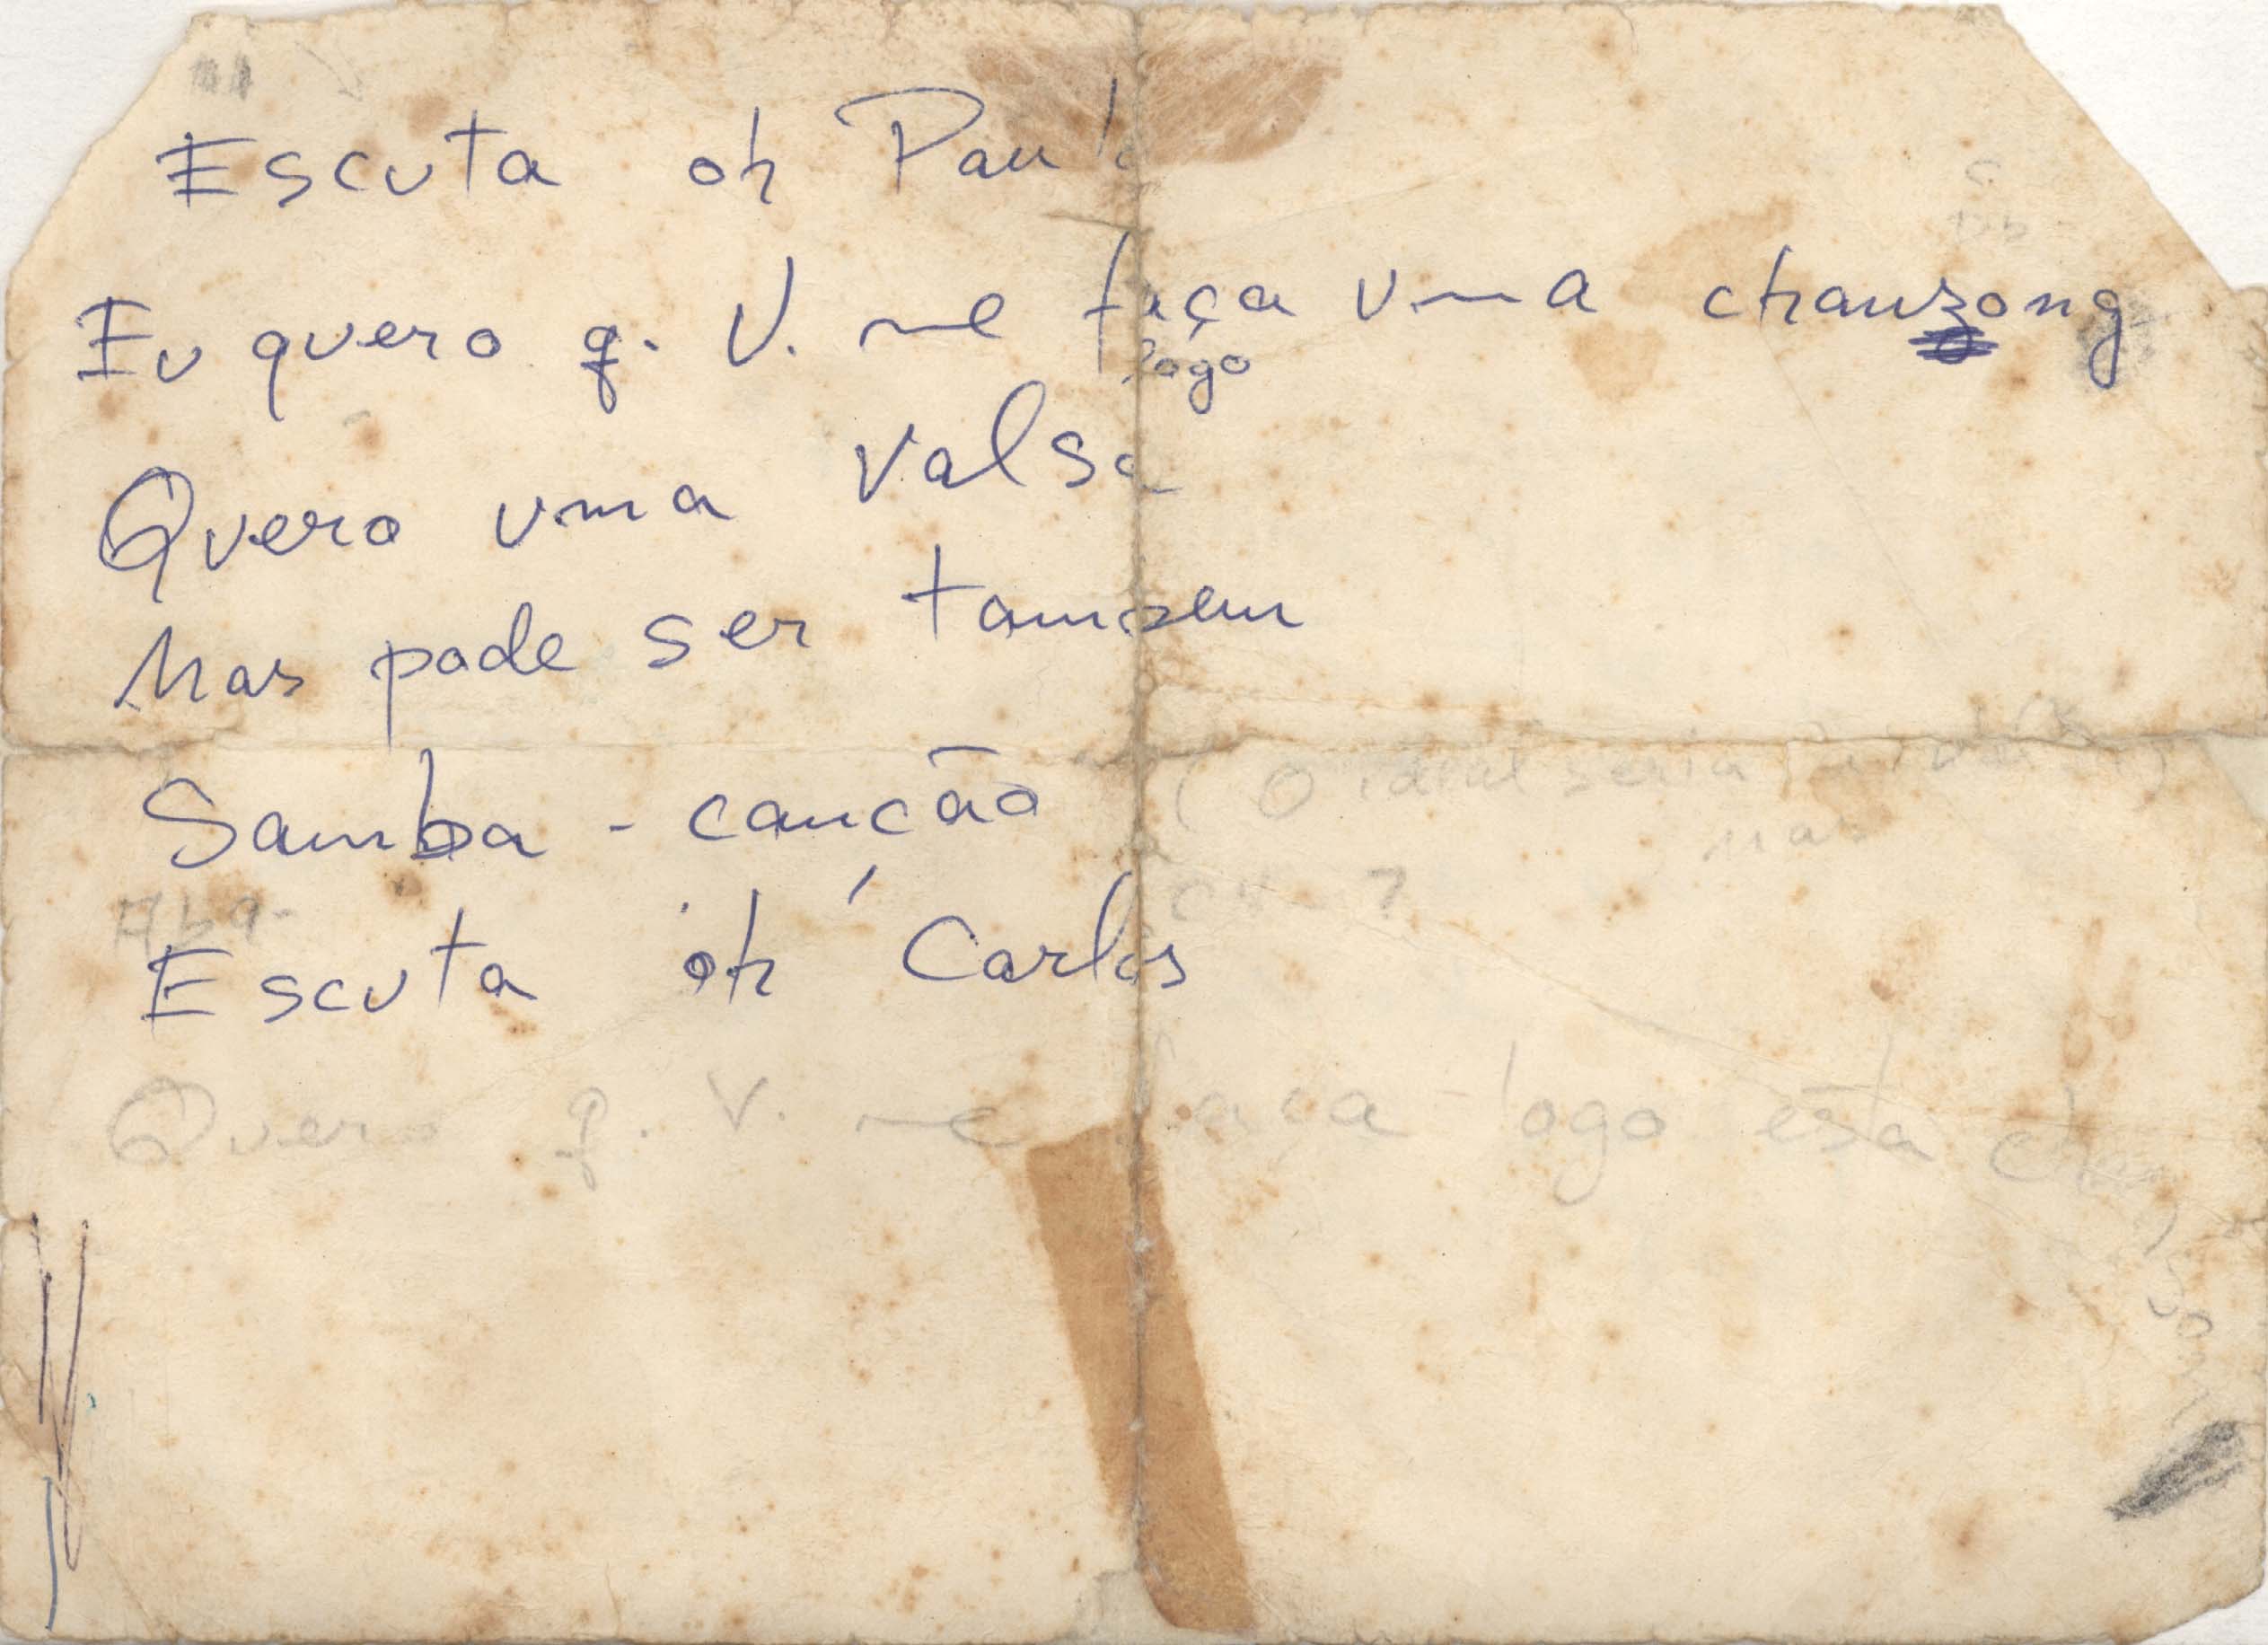 Escuta oh Paulo
Eu quero q. V. me faça uma chanzong
logo
Quero uma valsa
Mas pode ser tambem
Samba - canção
( O ideal seria
mas
Ab9-
Escuta oh Carlos
Quero q. V. me faça logo esta